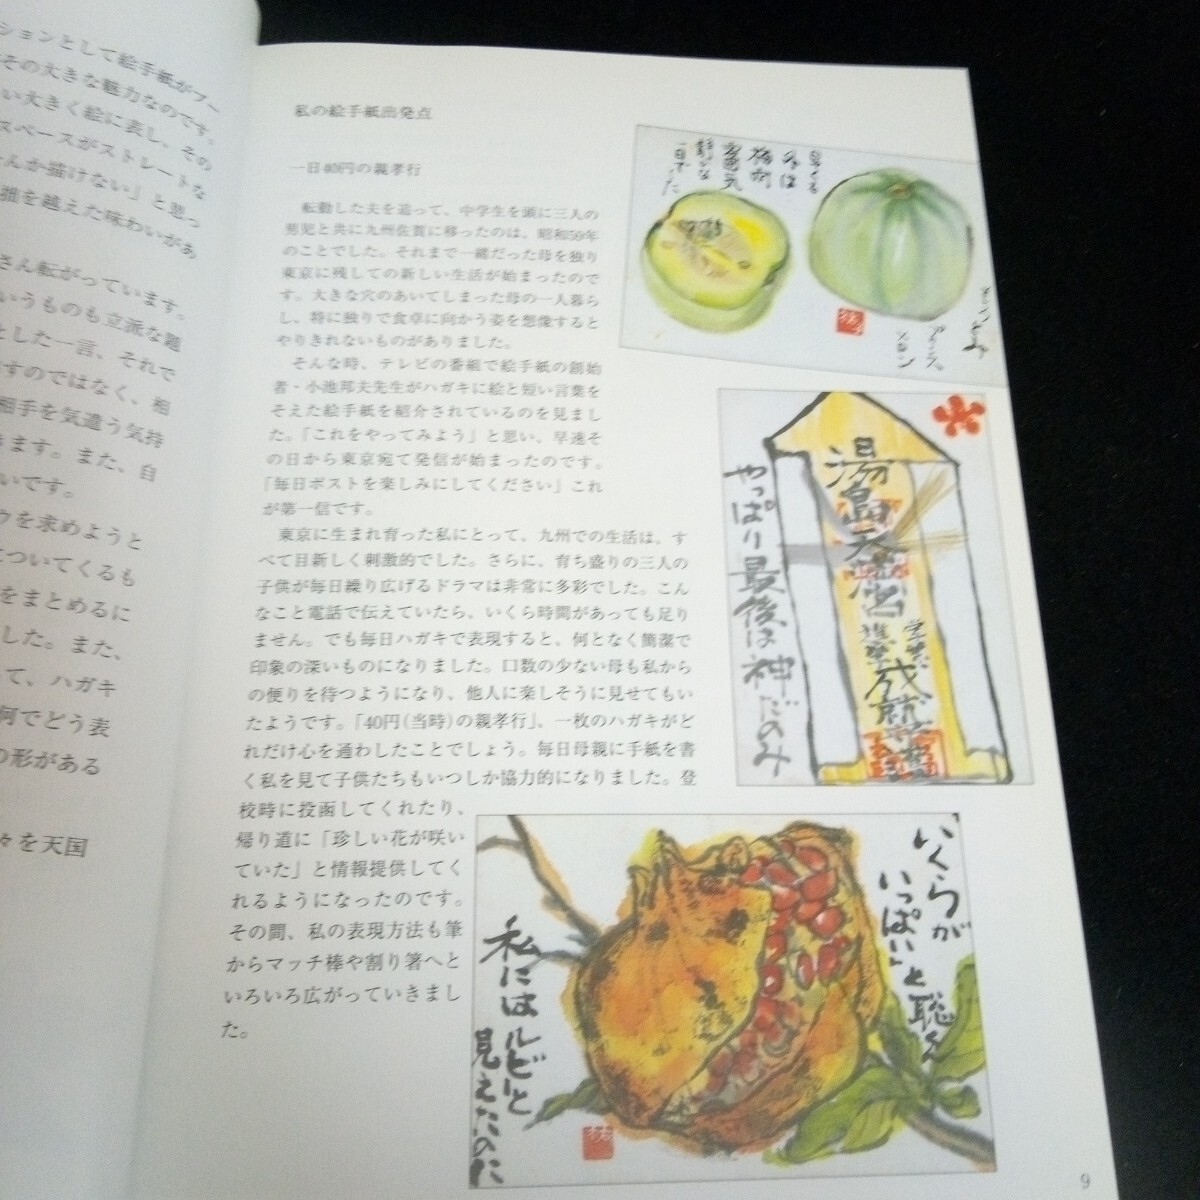 ションとして絵手紙がブー
その大きな魅力なのです。
い大きく絵に表し、その
スペースがストレートな
なんか描けない」と思っ
描を越えた味わいがあ
さん転がっています。
いうものも立派な題
とした一言、それで
すのではなく、相
相手を気遣う気持
きます。また、自
いです。
ウを求めようと
についてくるも
をまとめるに
した。また、
て、ハガキ
何でどう表
の形がある
々を天国
私の絵手紙出発点
一日40円の親孝行
転勤した夫を追って、中学生を頭に三人の
男児と共に九州佐賀に移ったのは、昭和59年
のことでした。それまで一緒だった母を独り
東京に残しての新しい生活が始まったので
す。大きな穴のあいてしまった母の一人暮ら
し、特に独りで食卓に向かう姿を想像すると
やりきれないものがありました。
そんな時、テレビの番組で絵手紙の創始
者・小池邦夫先生がハガキに絵と短い言葉を
そえた絵手紙を紹介されているのを見まし
た。「これをやってみよう」と思い、早速そ
の日から東京宛て発信が始まったのです。
「毎日ポストを楽しみにしてください」これ
が第一信です。
東京に生まれ育った私にとって、九州での生活は、す
べて目新しく刺激的でした。さらに、育ち盛りの三人の
子供が毎日繰り広げるドラマは非常に多彩でした。こん
なこと電話で伝えていたら、いくら時間があっても足り
ません。でも毎日ハガキで表現すると、何となく簡潔で
印象の深いものになりました。口数の少ない母も私から
の便りを待つようになり、他人に楽しそうに見せてもい
たようです。「40円(当時)の親孝行」、一枚のハガキがど
れだけ心を通わしたことでしょう。毎日母親に手紙を書
く私を見て子供たちもいつしか協力的になりました。登
校時に投函してくれたり、
帰り道に「珍しい花が咲い
ていた」と情報提供してく
れるようになったのです。
その間、私の表現方法も筆
からマッチ棒や割り箸へと
いろいろ広がっていきまし
た。
静かな
一日でした
プリンス
メロン
湯島天満宮
学業成就
やっぱり最後は神だのみ
いくらが
いっぱい」と聡くん
私にはルビーと
見えたのに
9